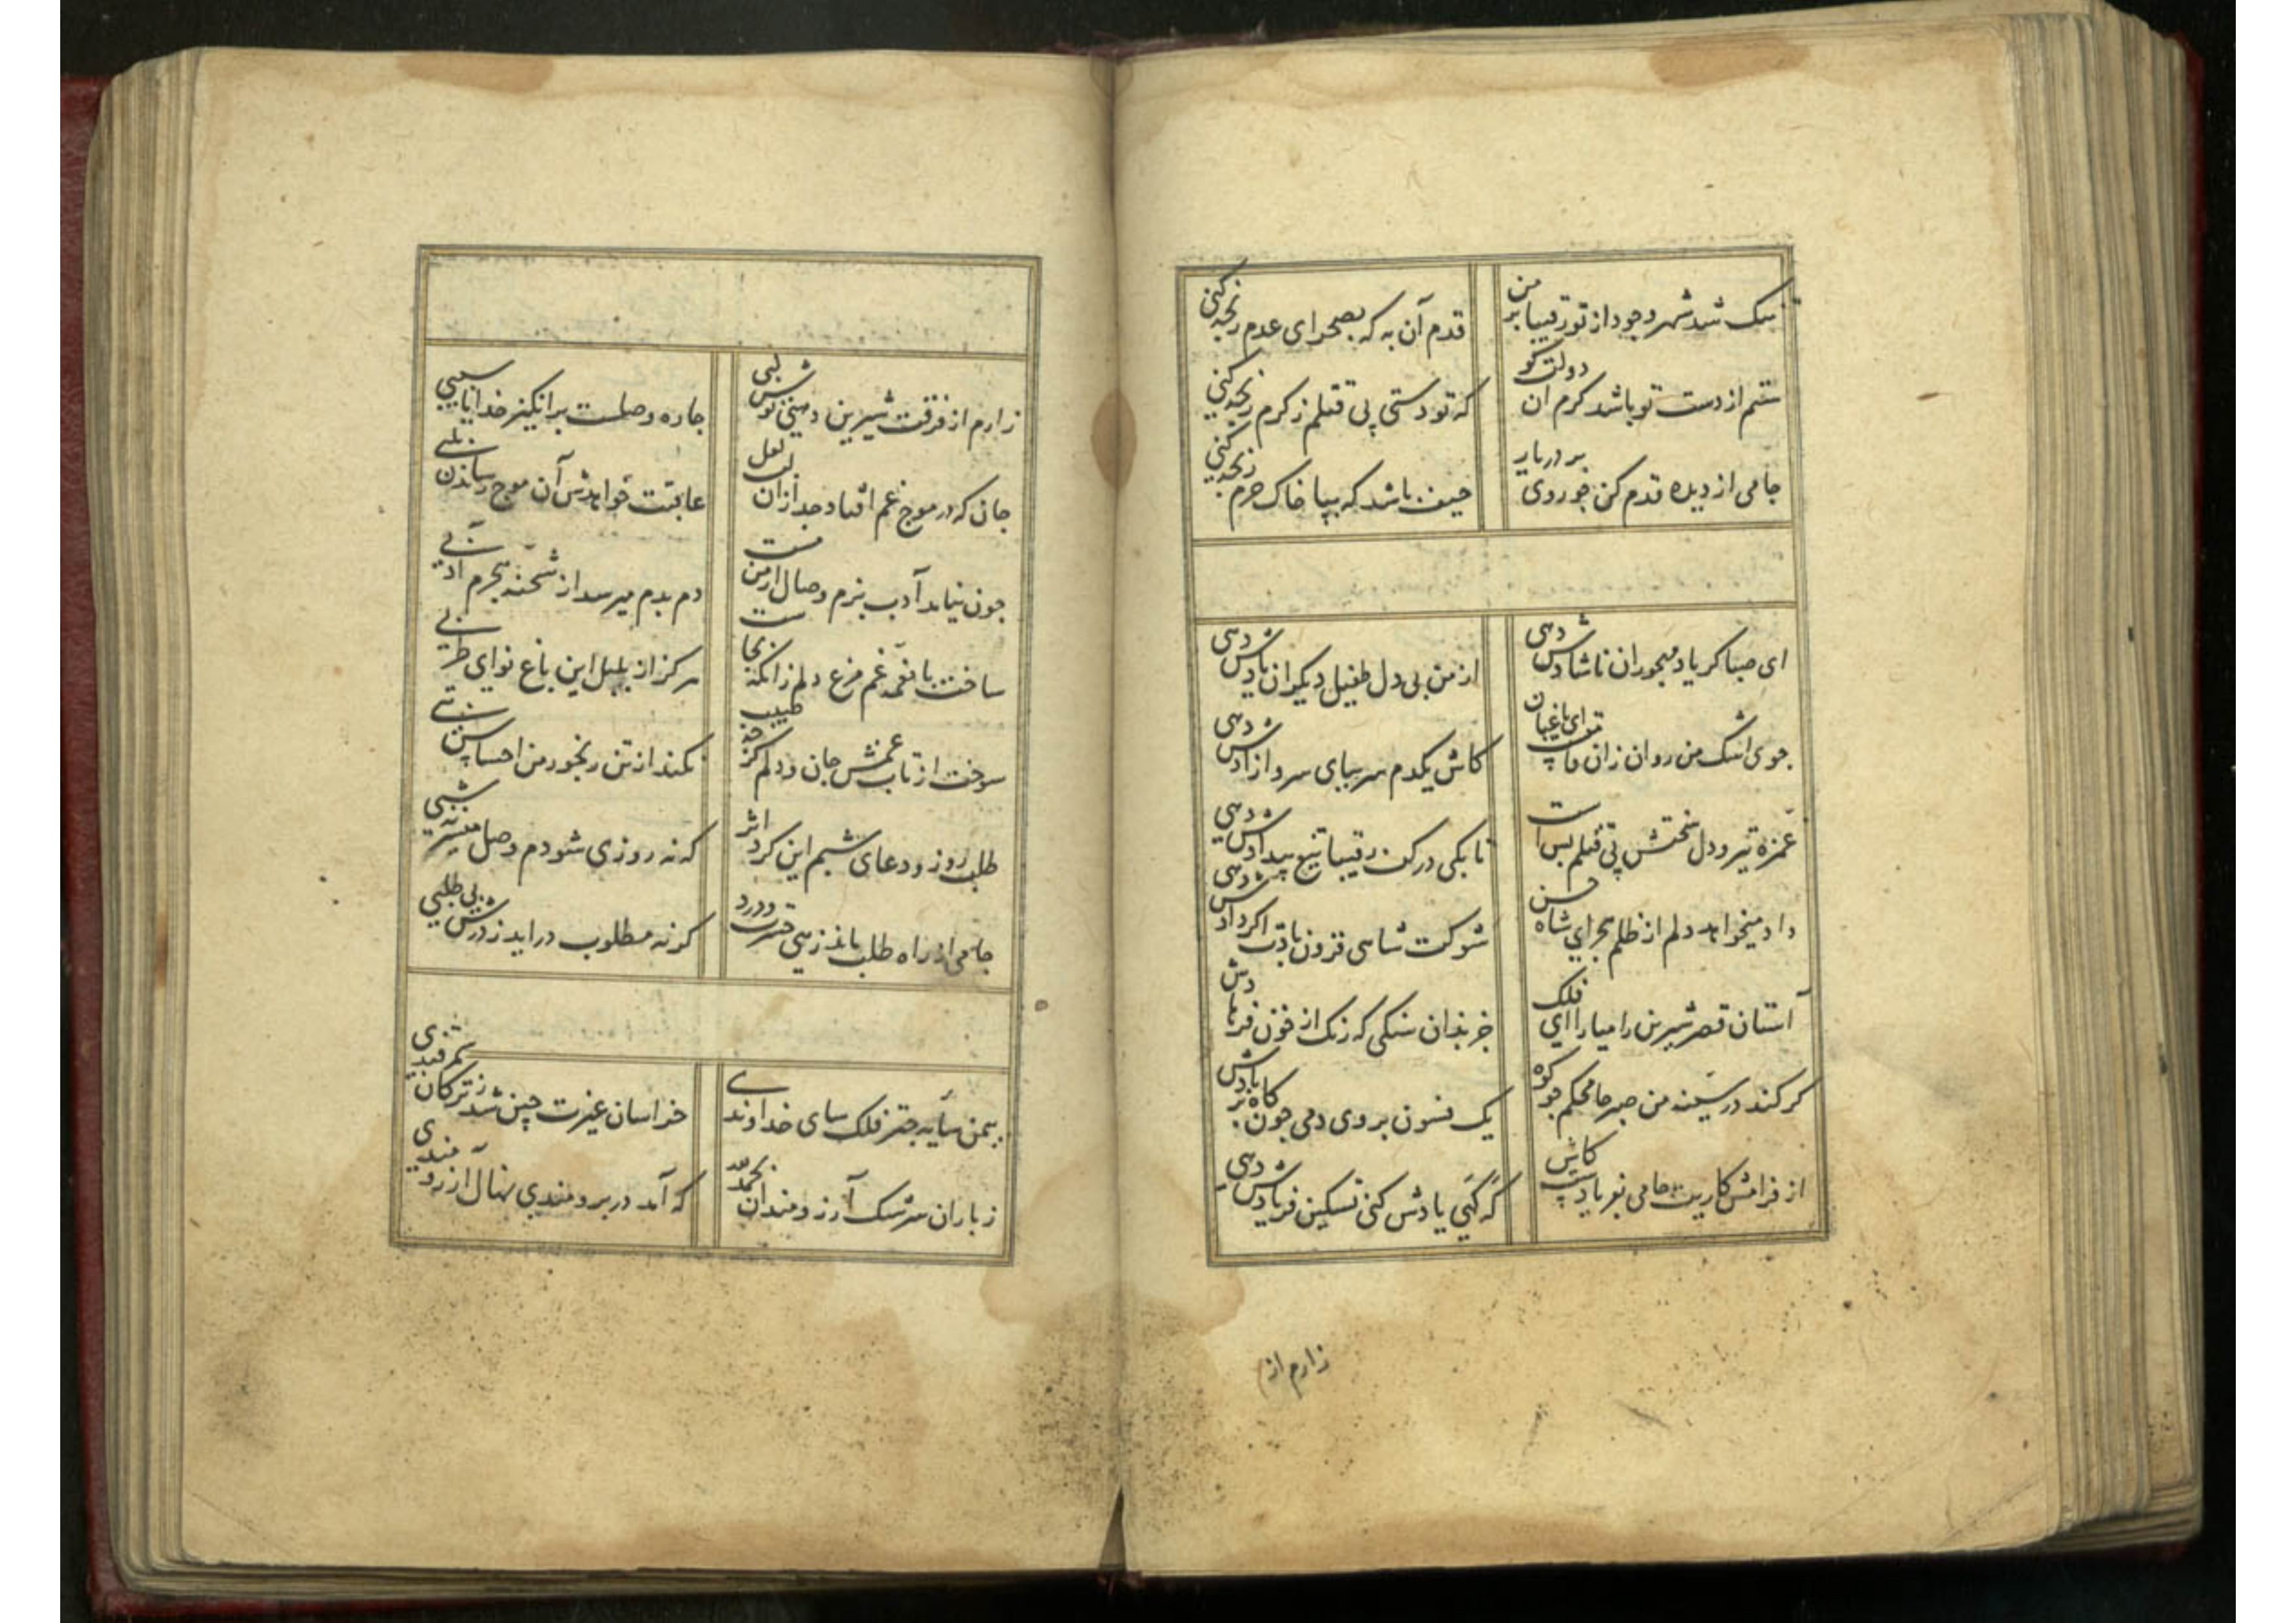 تنک شد شهر وجود از تو رقیبا بر من
قدم آن به که بصحرای عدم رنجه کنی
ستم از دست تو باشد کرم ان دولت کو
که تو دستی پی قتلم ز کرم رنجه کنی
جامی از دیده قدم کن جو روی بر در یار
حیف باشد که بپا خاک حرم رنجه کنی
ای صبا کر یاد مهجوران ناشادش دهی
از من بی دل طفیل دیکران یادش دهی
جوی اشک من روان زان قامتست ای باغبان
کاش یکدم سر بپای سرو ازادش دهی
غمزه تیر و دل سختش پی قتلم بس است
تا بکی در کف رقیبا تیغ بیدادش دهی
داد میخواهد دلم از ظلم هجر ای شاه حسن
شوکت شاهی فزون بادت اکر دادش دهی
آستان قصر شیرین را میارا ای فلک
جز بدان سنکی که رنک از خون فرهادش
کر کند در سینه من صبر جا محکم جو کوه
یک فسون بر وی دمی جون کاه بر بادش
از فرامش کاریت جامی بفریادست کاش
که کهی یادش کنی تسکین فریادش دهی
زارم از
زارم از فرقت شیرین دهنی نوش لبی
جاره وصلست برانکیز خدایا سببی
جان که در موج غم افتاد جدا زان لب لعل
عاقبت خواهدش آن موج رساندن بلبی
جون نیاید آدب بزم وصال از من مست
دم بدم میرسد از شحنه هجرم ادبی
ساخت با نغمه غم مرغ دلم زانکه نخاست
هرکز از بلبل این باغ نوای طربی
سوخت از تاب غمش جان و دلم کرجه طبیب
نکند از تن رنجور من احساس تبی
طلب روز و دعای شبم این کرد اثر
که نه روزی شودم وصل میسر نه شبی
جامی از راه طلب ماند زهی حسرت و درد
کر نه مطلوب دراید ز درش بی طلبی
بیمن سایه جتر فلک سای خداوندی
خراسان غیرت جین شد ز ترکان سمرقندی
ز باران سرشک آرزومندان بحمدلله
که آمد در برومندی نهال آرزومندی